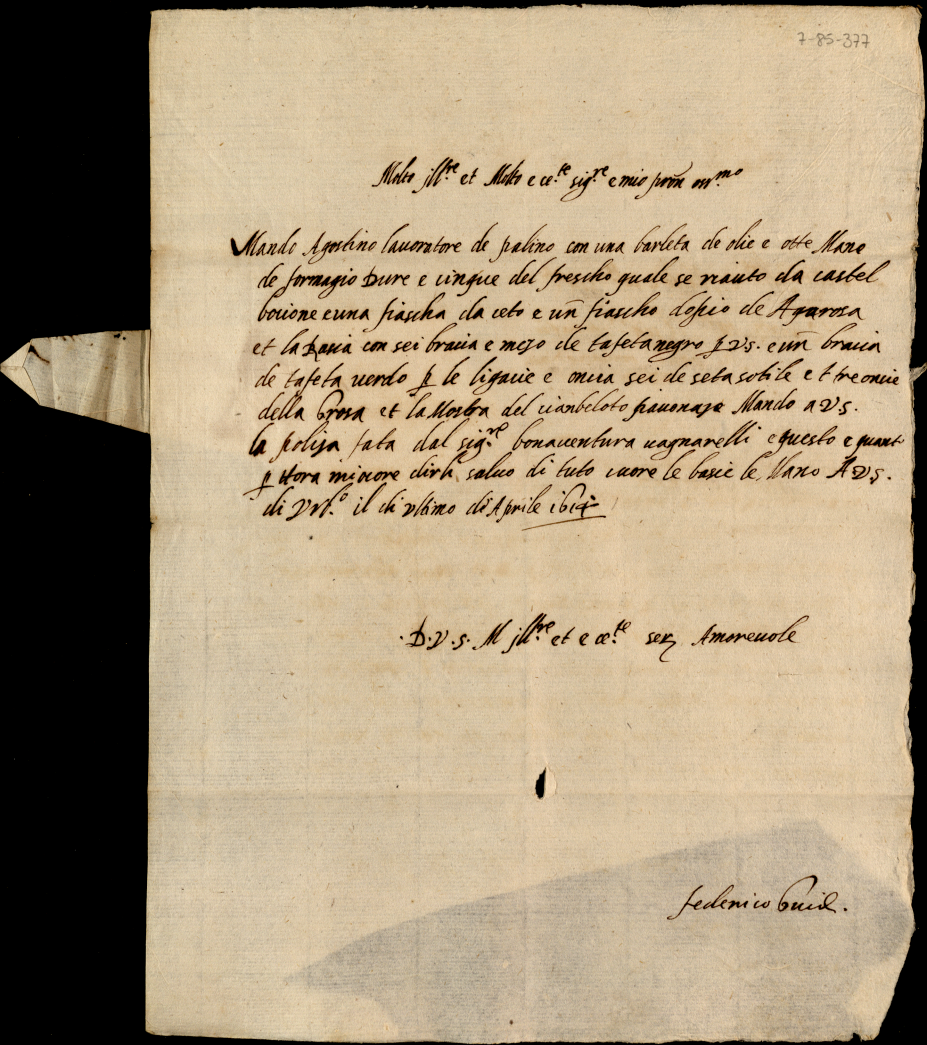 7-85-377
Molto jll.re et Molto ecc.te sig.re e mio pron oss.mo
Mando Agostino lauoratore de palino con una barleta de olie e otte Mano
de formagio Dure e cinque del frescho quale se riauto da castel
bocione e una fiascha da ceto e un fiascho dopio de Aqua rosa
et la Rasia con sei bracia e mezo de tafeta negro p V.S. e un bracia
de tafeta uerdo p le ligacie e oncia sei de seta sotile e ttre oncie
della Grosa et la Mostra del cianbeloto pauonazo Mando a V S.
la poliza fata dal sig.re bonauentura uagnarelli e questo e quant
p hora mi ocore dirli saluo di tuto cuore le bacie le Mano A V S.
di Vrb.o il di Vltimo di Aprile 1614
.D.V.S. M jll.re et ecc.te ser Amoreuole
federico Guid.